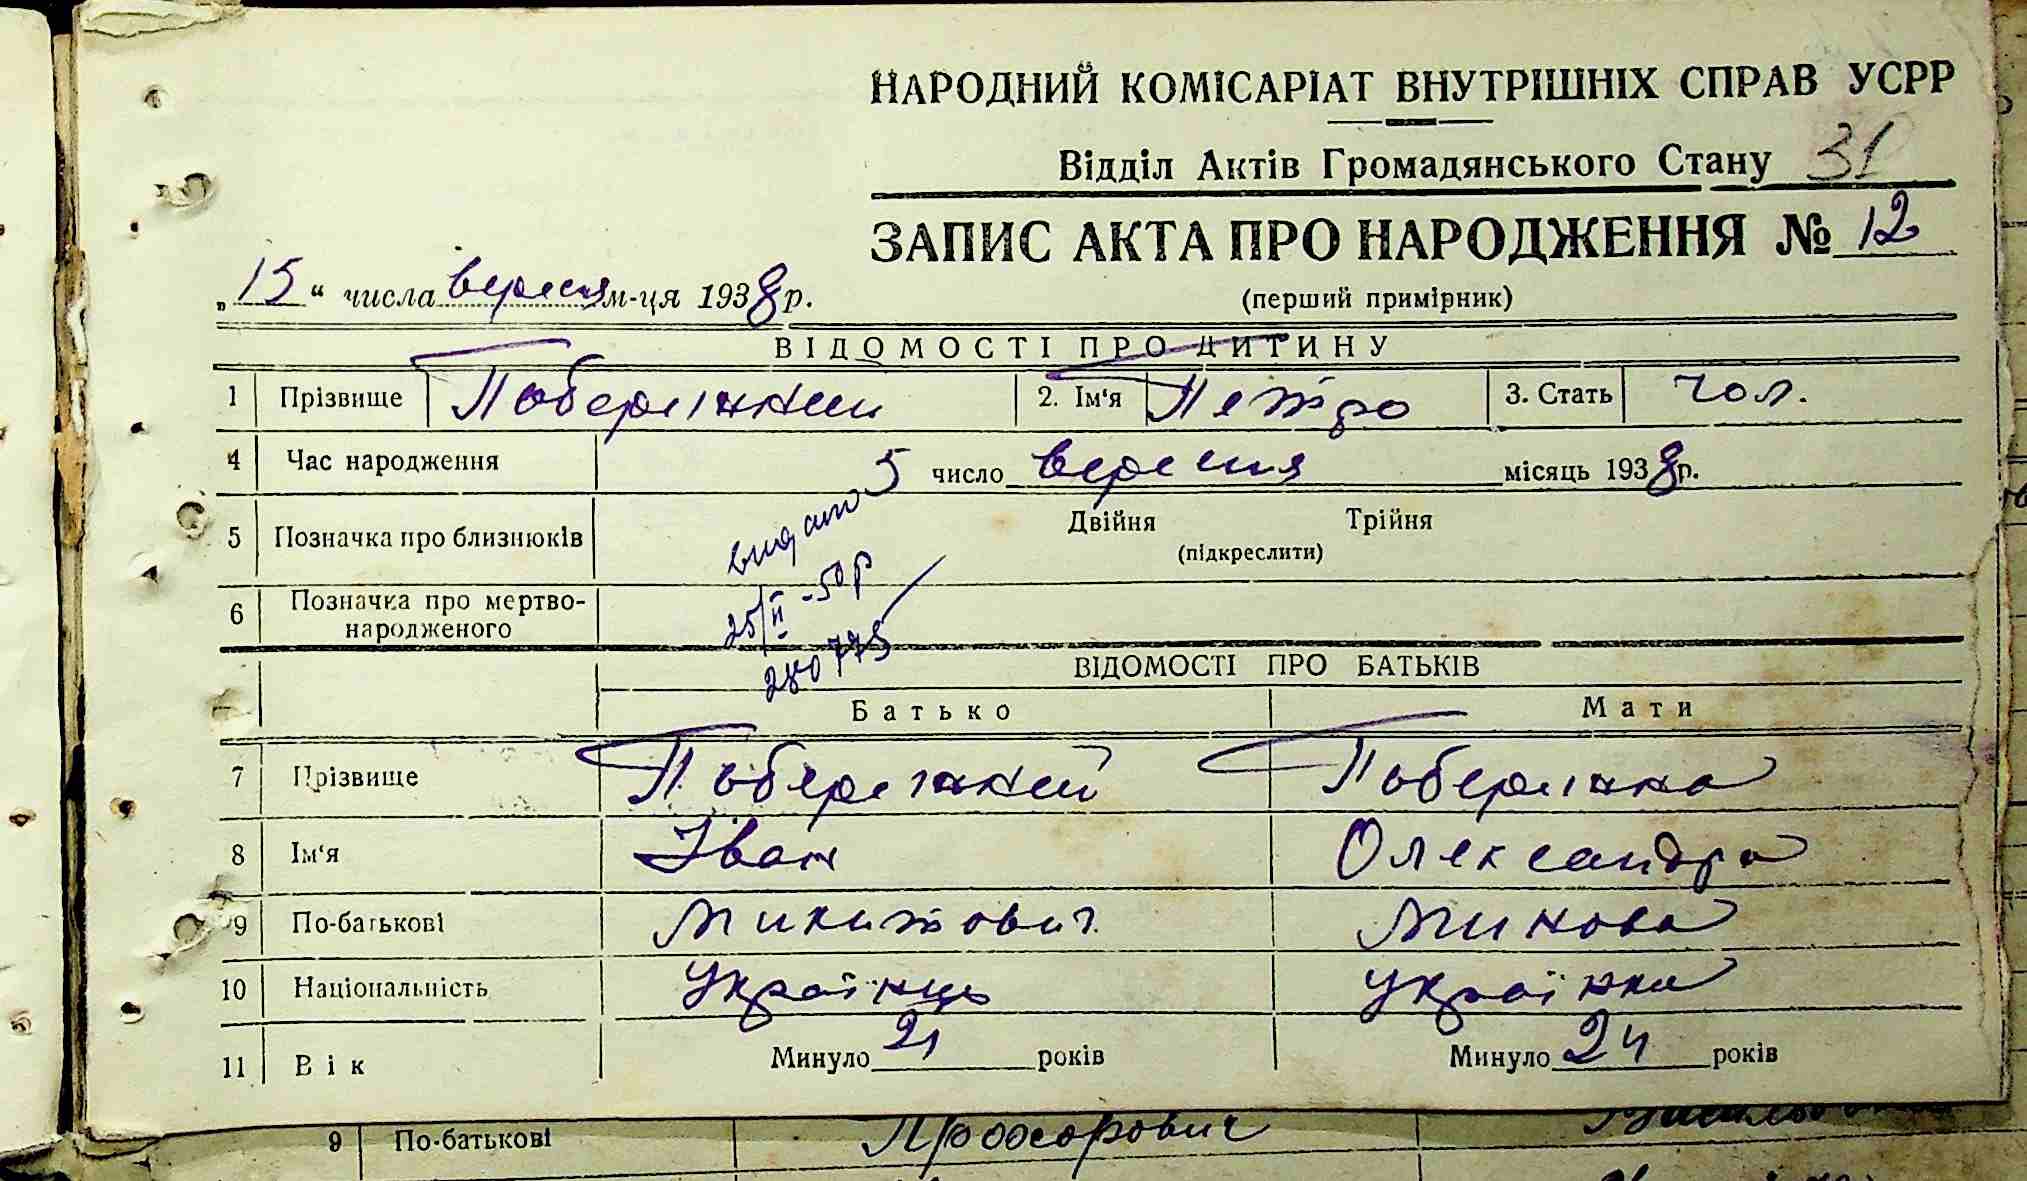 НАРОДНИЙ КОМІСАРІАТ ВНУТРІШНІХ СПРАВ УСРР
Відділ Актів Громадянського Стану 31
ЗАПИС АКТА ПРО НАРОДЖЕННЯ № 12
„15“ числа вересня м-ця 1938 р.
(перший примірник)
ВІДОМОСТІ ПРО ДИТИНУ
1 Прізвище Побережний 2. Ім'я Петро 3. Стать чол.
4 Час народження 5 число вересня місяць 1938 р.
5 Позначка про близнюків Двійня Трійня
(підкреслити)
видано
25/II-50 р
280775
6 Позначка про мертво-
народженого
ВІДОМОСТІ ПРО БАТЬКІВ
Батько Мати
7 Прізвище Побережний Побережна
8 Ім'я Іван Олександра
9 По-батькові Микитович
10 Національність Українець Українка
11 Вік Минуло 21 років Минуло 24 років
9 По-батькові Прохорович